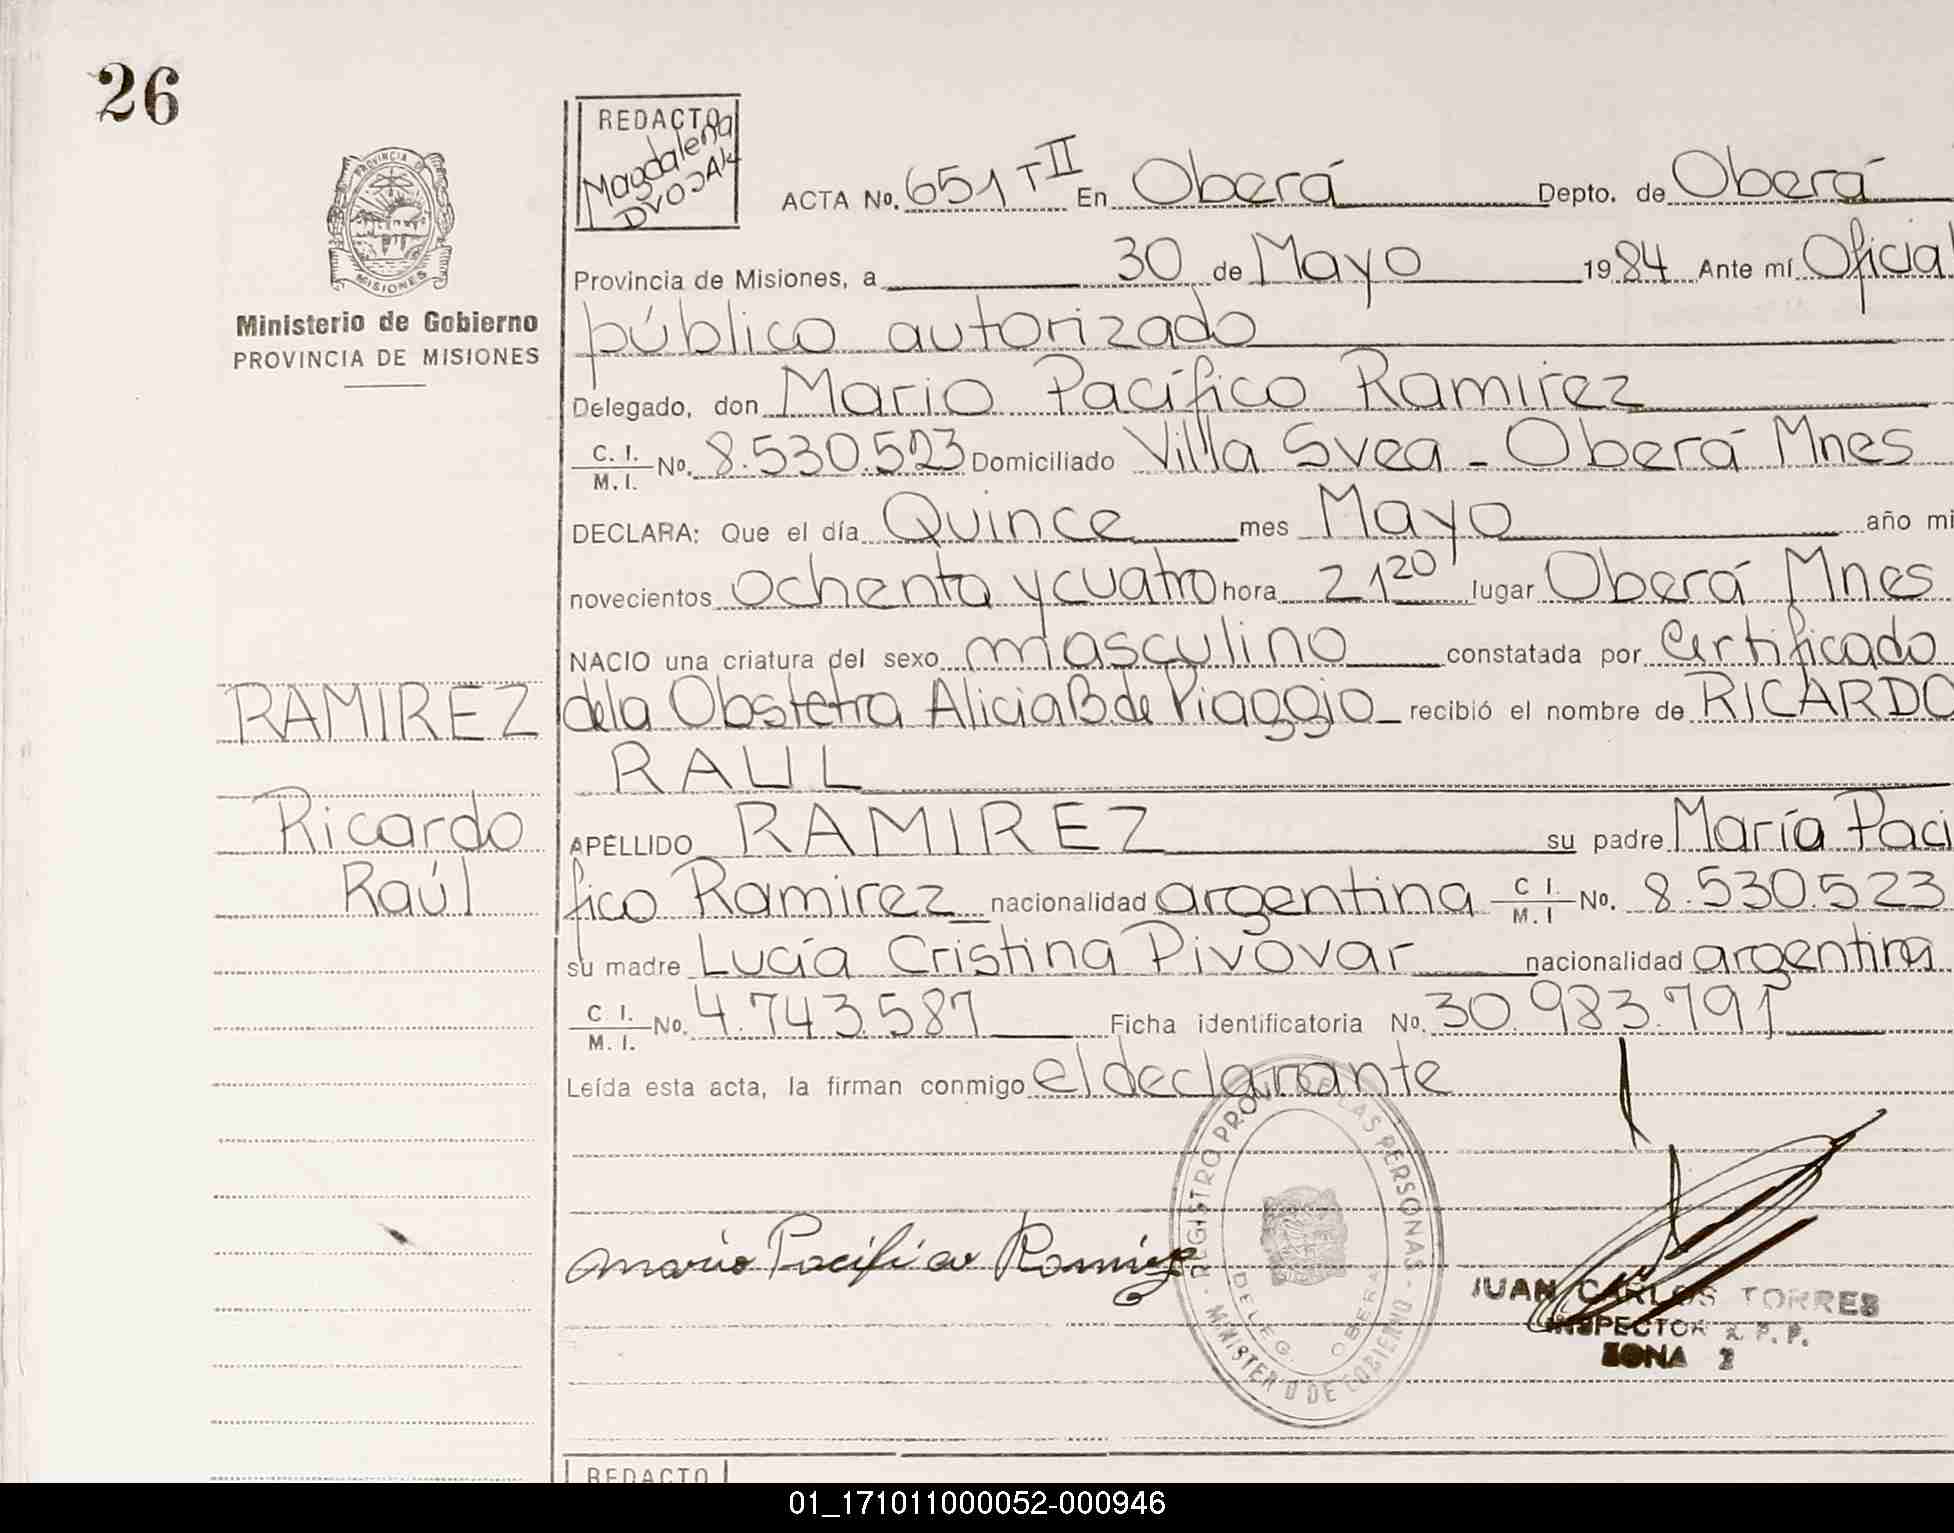 26
REDACTO
Magdalena
DVOJAK
ACTA No. 651 T II En Oberá Depto. de Oberá
PROVINCIA DE
MISIONES
Provincia de Misiones, a 30 de Mayo 1984 Ante mí Oficial
Ministerio de Gobierno
PROVINCIA DE MISIONES
público autorizado
Delegado, don Mario Pacífico Ramirez
C. I. M. I. No. 8.530.523 Domiciliado Villa Svea - Oberá Mnes
DECLARA: Que el día Quince mes Mayo año mi
novecientos ochenta y cuatro hora 21 20 lugar Oberá Mnes
NACIO una criatura del sexo masculino constatada por Certificado
RAMIREZ
de la Obstetra Alicia B de Piaggio recibió el nombre de RICARDO
RAUL
Ricardo
Raúl
APELLIDO RAMIREZ su padre María Paci
fico Ramirez nacionalidad argentina C I. M. I No. 8.530.523
su madre Lucía Cristina Pivovar nacionalidad argentina
C I. M. I. No. 4.743.587 Ficha identificatoria No. 30.983.791
Leída esta acta, la firman conmigo el declarante
REGISTRO PROV. DE LAS PERSONAS - MINISTERIO DE GOBIERNO -
DELEG. OBERA
Mario Pacifico Ramirez
JUAN CARLOS TORRES
INSPECTOR R. P. P.
ZONA 2
REDACTO
01_171011000052-000946